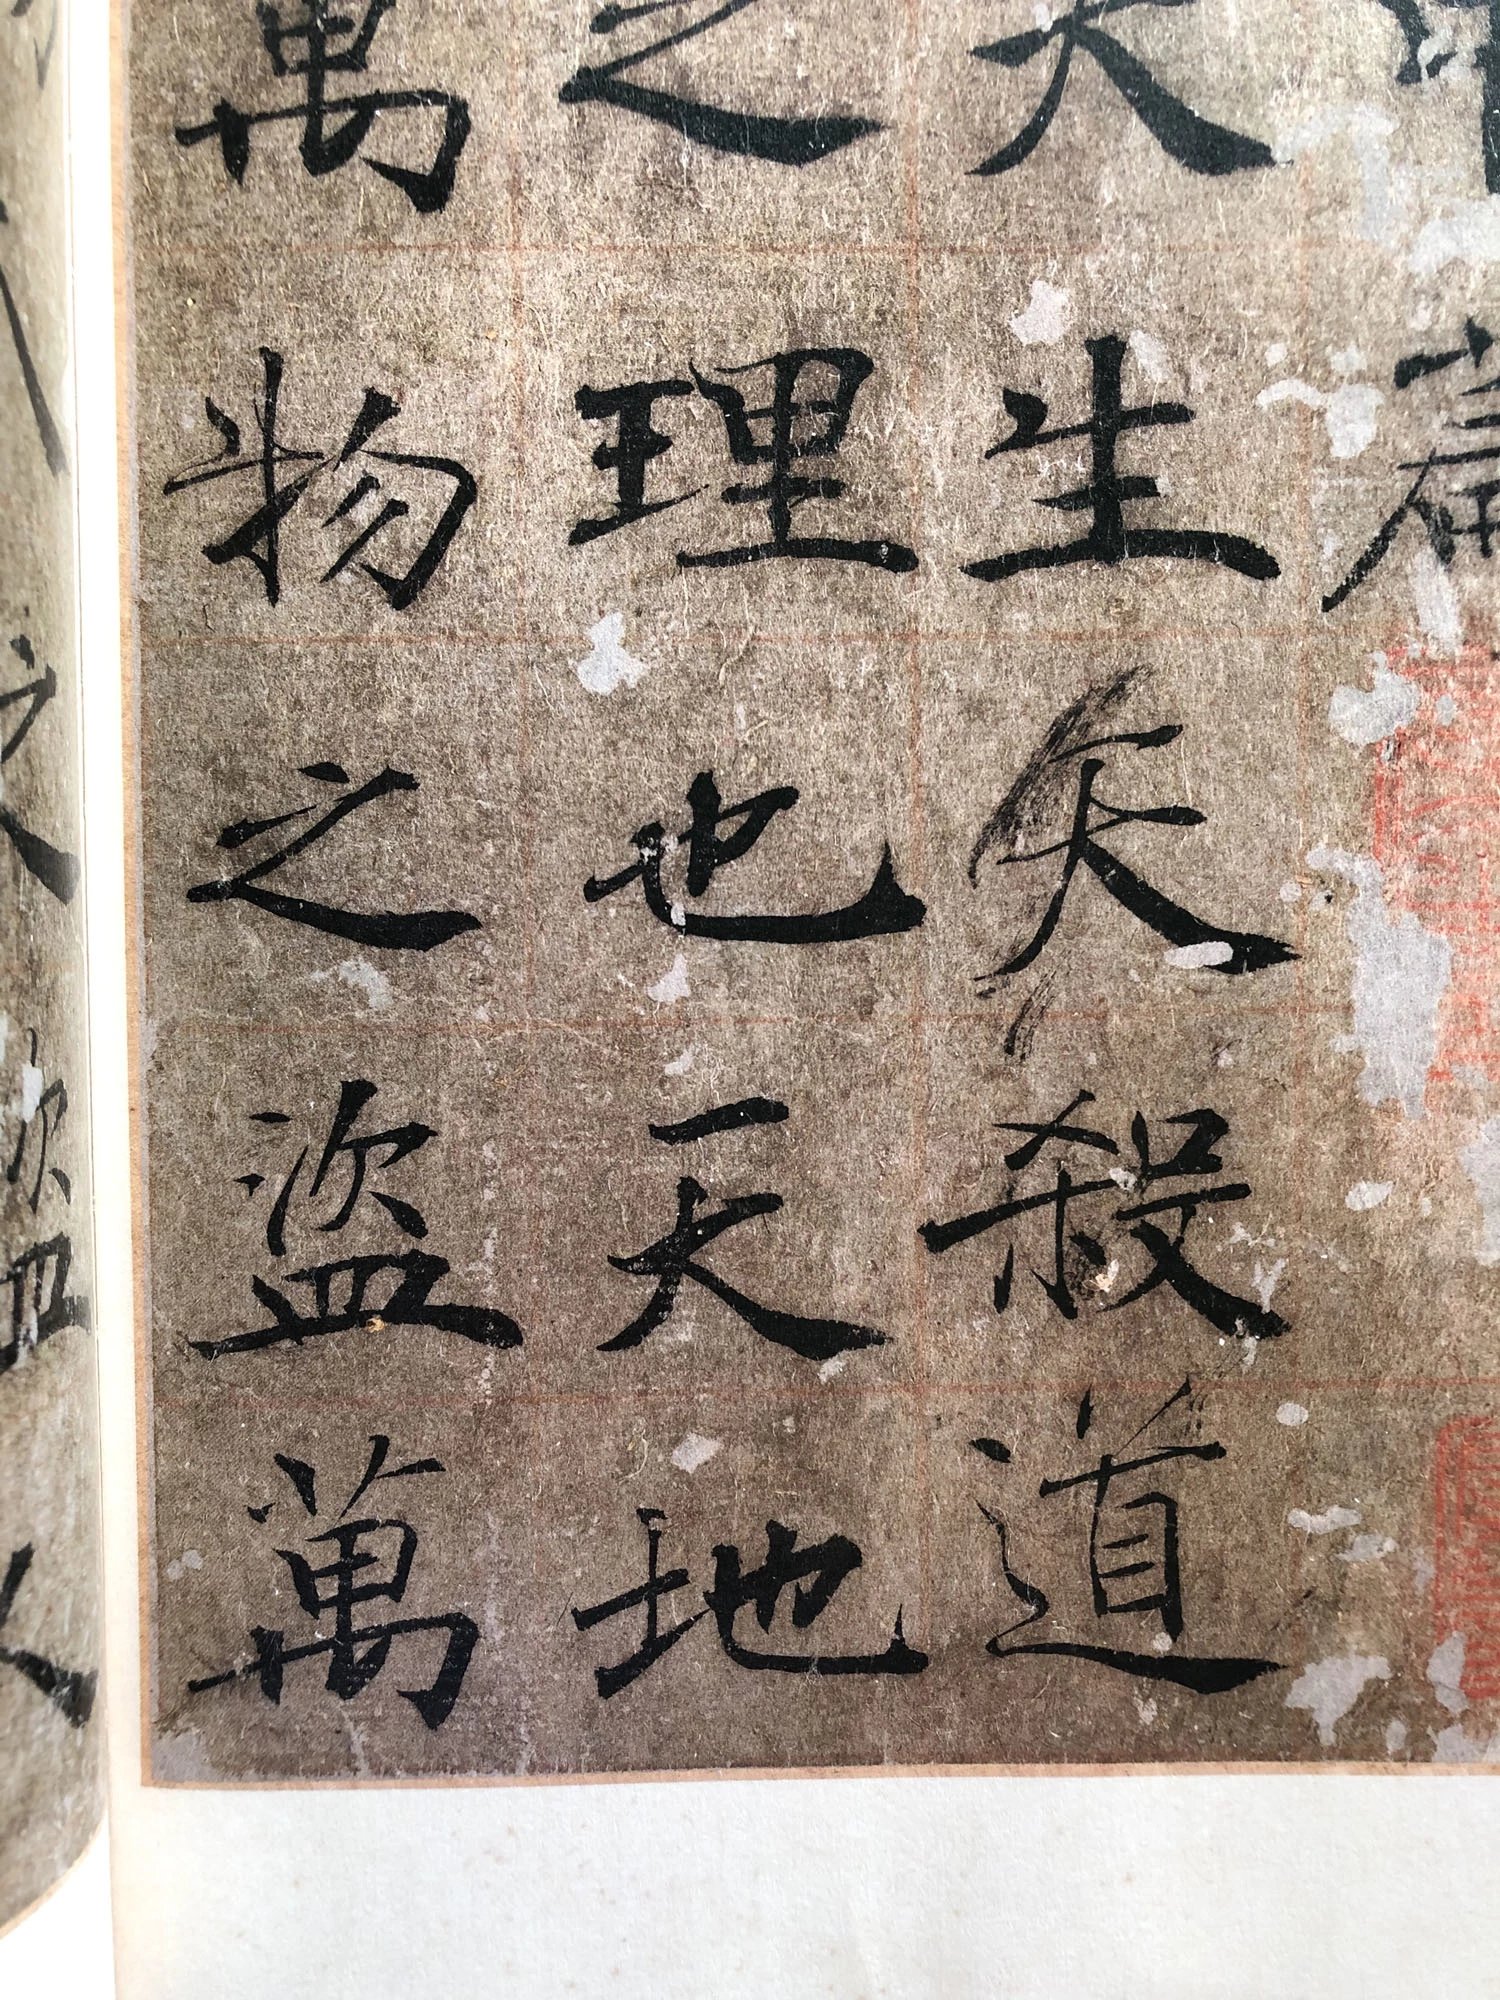 篇
天生天殺道
之理也天地
萬物之盜萬